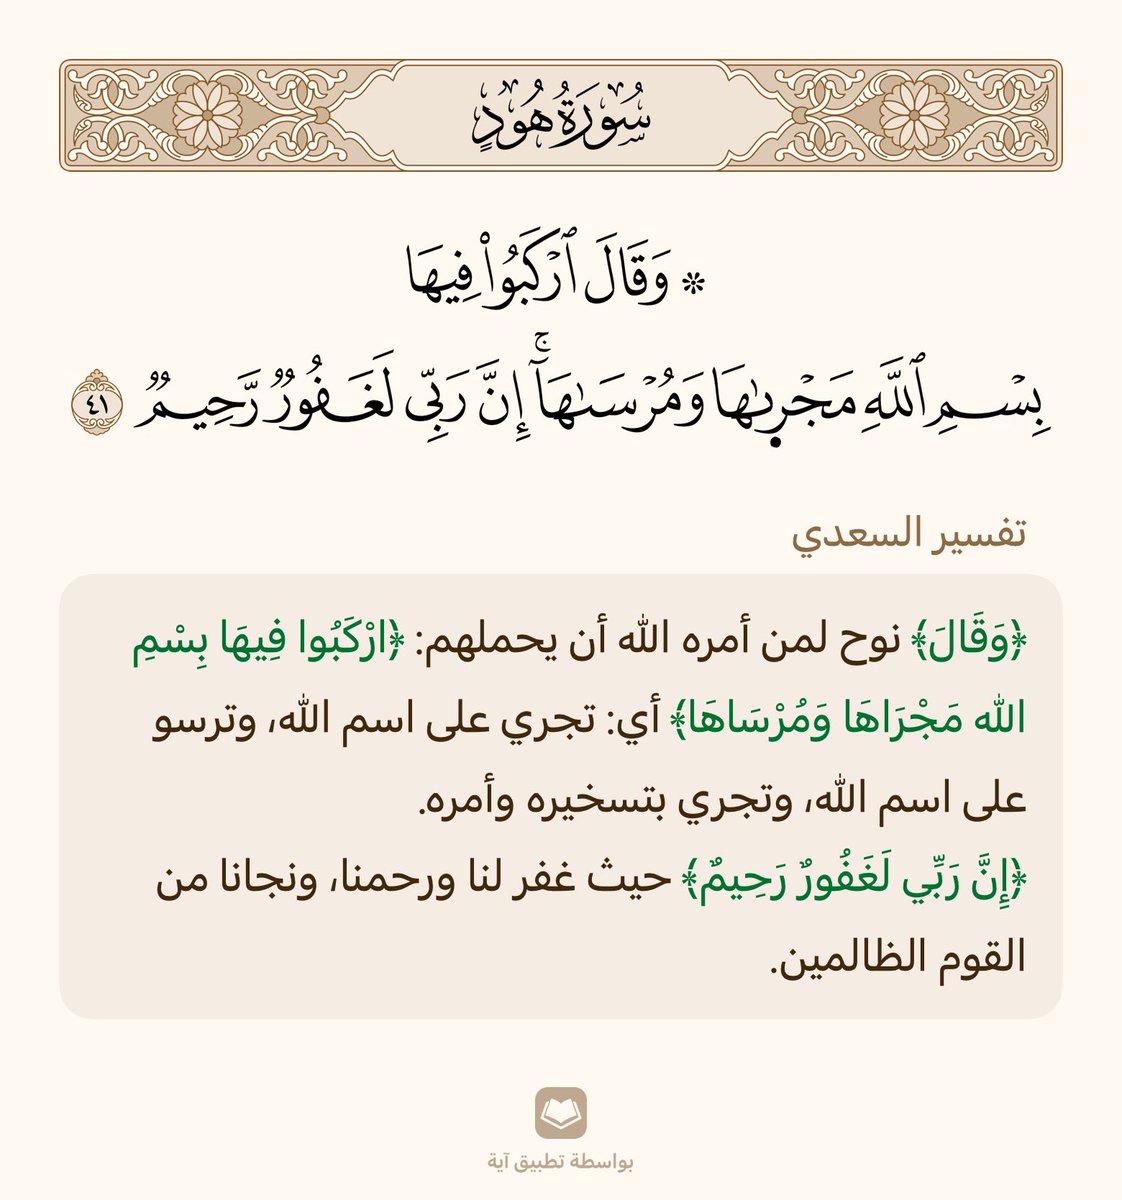 سُورَةُ هُودٍ
۞ وَقَالَ ٱرْكَبُوا۟ فِيهَا
بِسْمِ ٱللَّهِ مَجْر۪ىٰهَا وَمُرْسَىٰهَآ ۚ إِنَّ رَبِّى لَغَفُورٌ رَّحِيمٌ ٤١
تفسير السعدي
﴿وَقَالَ﴾ نوح لمن أمره الله أن يحملهم: ﴿ارْكَبُوا فِيهَا بِسْمِ
الله مَجْرَاهَا وَمُرْسَاهَا﴾ أي: تجري على اسم الله، وترسو
على اسم الله، وتجري بتسخيره وأمره.
﴿إِنَّ رَبِّي لَغَفُورٌ رَحِيمٌ﴾ حيث غفر لنا ورحمنا، ونجانا من
القوم الظالمين.
بواسطة تطبيق آية